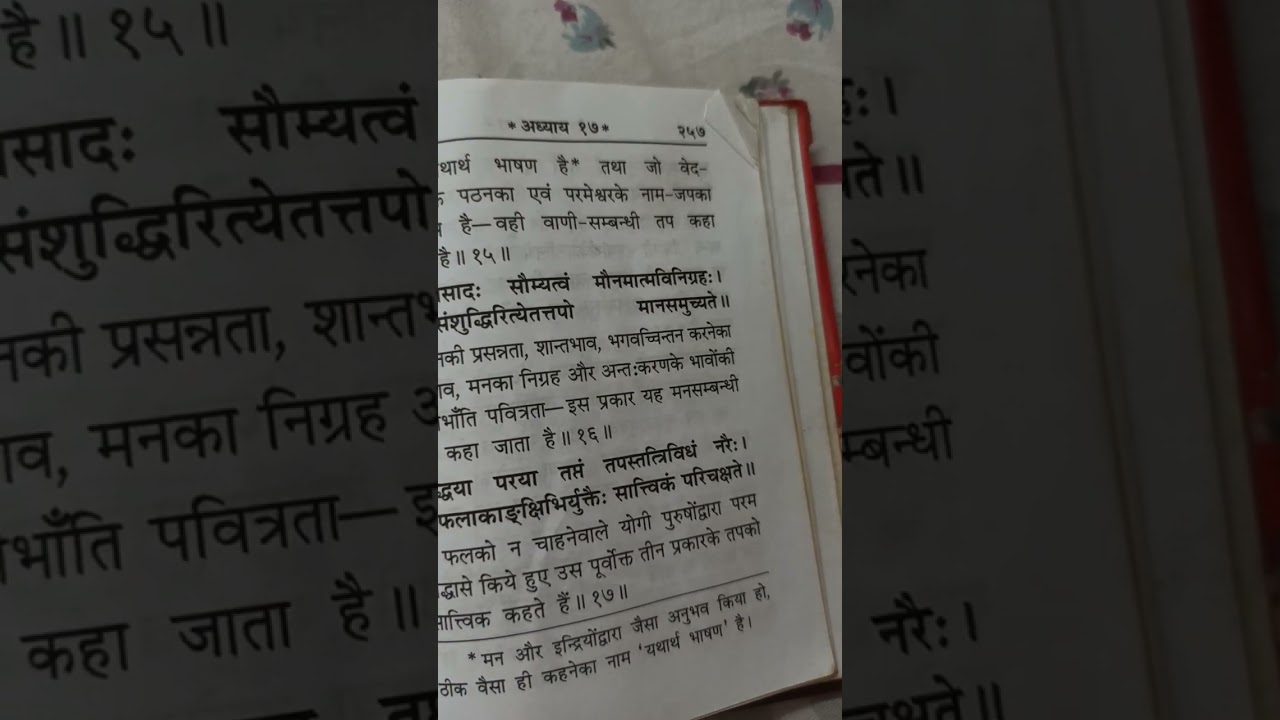 * अध्याय १७ * २५७
भाषण है* तथा जो वेद-
पठनका एवं परमेश्वरके नाम-जपका
है—वही वाणी-सम्बन्धी तप कहा
है॥ १५॥
सौम्यत्वं मौनमात्मविनिग्रहः।
मानसमुच्यते॥
प्रसन्नता, शान्तभाव, भगवच्चिन्तन करनेका
मनका निग्रह और अन्तःकरणके भावोंकी
पवित्रता—इस प्रकार यह मनसम्बन्धी
कहा जाता है॥ १६॥
परया तप्तं तपस्तत्त्रिविधं नरैः।
सात्त्विकं परिचक्षते॥
फलको न चाहनेवाले योगी पुरुषोंद्वारा परम
किये हुए उस पूर्वोक्त तीन प्रकारके तपको
कहते हैं॥ १७॥
* मन और इन्द्रियोंद्वारा जैसा अनुभव किया हो,
ठीक वैसा ही कहनेका नाम 'यथार्थ भाषण' है।